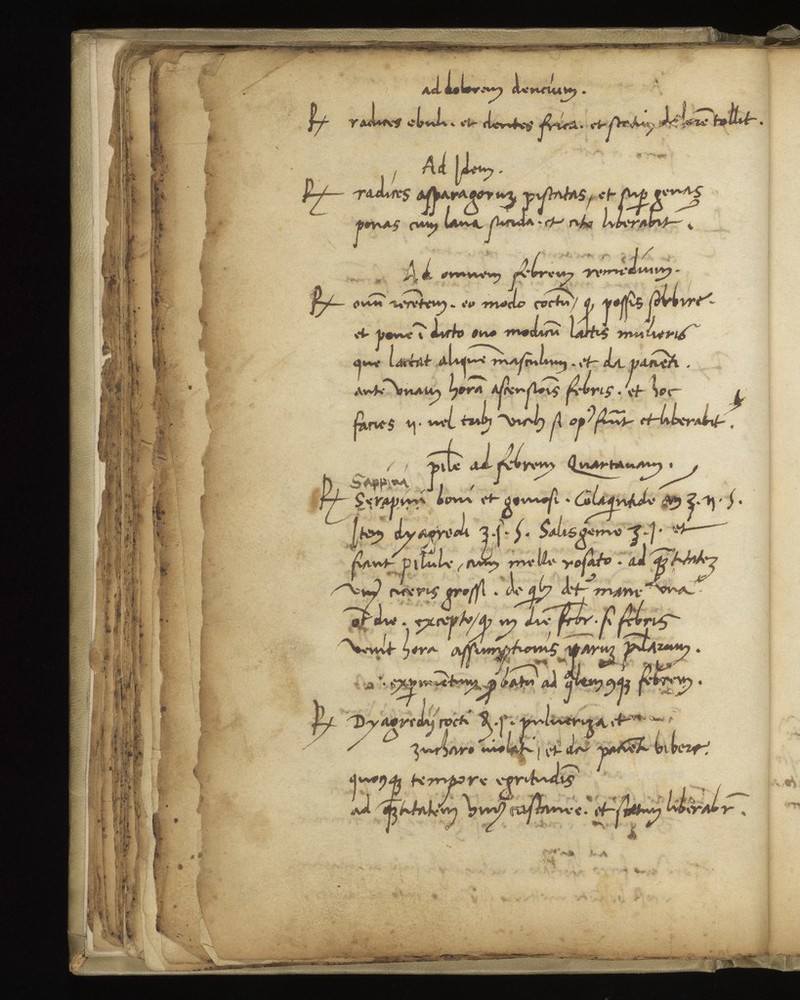 ad dolorem dencium.
℞ radices ebuli. et dentes frica. et statim dolorē tollit.
Ad Idem.
℞ radices asparagoruꝫ pistatas, et suꝑ genas
ponas cum lana sucida. et cito liberabit.
Ad omnem febrem remedium.
℞ ouū recētem. eo modo coctū, ꝙ possis sorbire.
et pone ī dicto ouo modicū lactis mulieris
que lactat aliquē masculum. et da paciēti.
ante vnam horā ascensiōis febris. et hoc
facies ij. uel trib vicib si opꝰ fūit et liberabit.
pile ad febrem Quartanam.
Sappini
℞ Serapini boni et gomosi. Colaq̄ntide an̄ ʒ. ij. s.
Item dyagredi ʒ. j. s. Salisgēme ʒ. j. et
fiant pilule, cum melle rosato. ad quātitateꝫ
vniꝰ ciceris grossi. de qib detʳ mane vna
oī die. excepto, ꝙ in die febr. si febris
venit hora assumptionis ip̄aruꝫ pilarum.
experimentum ꝓbatū ad q̄lemcūqꝫ febrem.
℞ Dyagredij cocti ʒ. j. pulueriza et
zucharo uiolati, et da paciēti bibere.
quocūqꝫ tempore egritudis
ad quātitatem vniꝰ castanee. et statim liberabr̄.